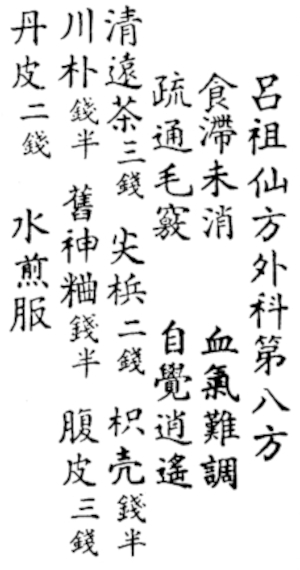 呂祖仙方外科第八方
食滯未消　血氣難調
疏通毛竅　自覺逍遙
清遠茶三錢　尖梹二錢　枳壳錢半
川朴錢半　舊神粬錢半　腹皮三錢
丹皮二錢　水煎服